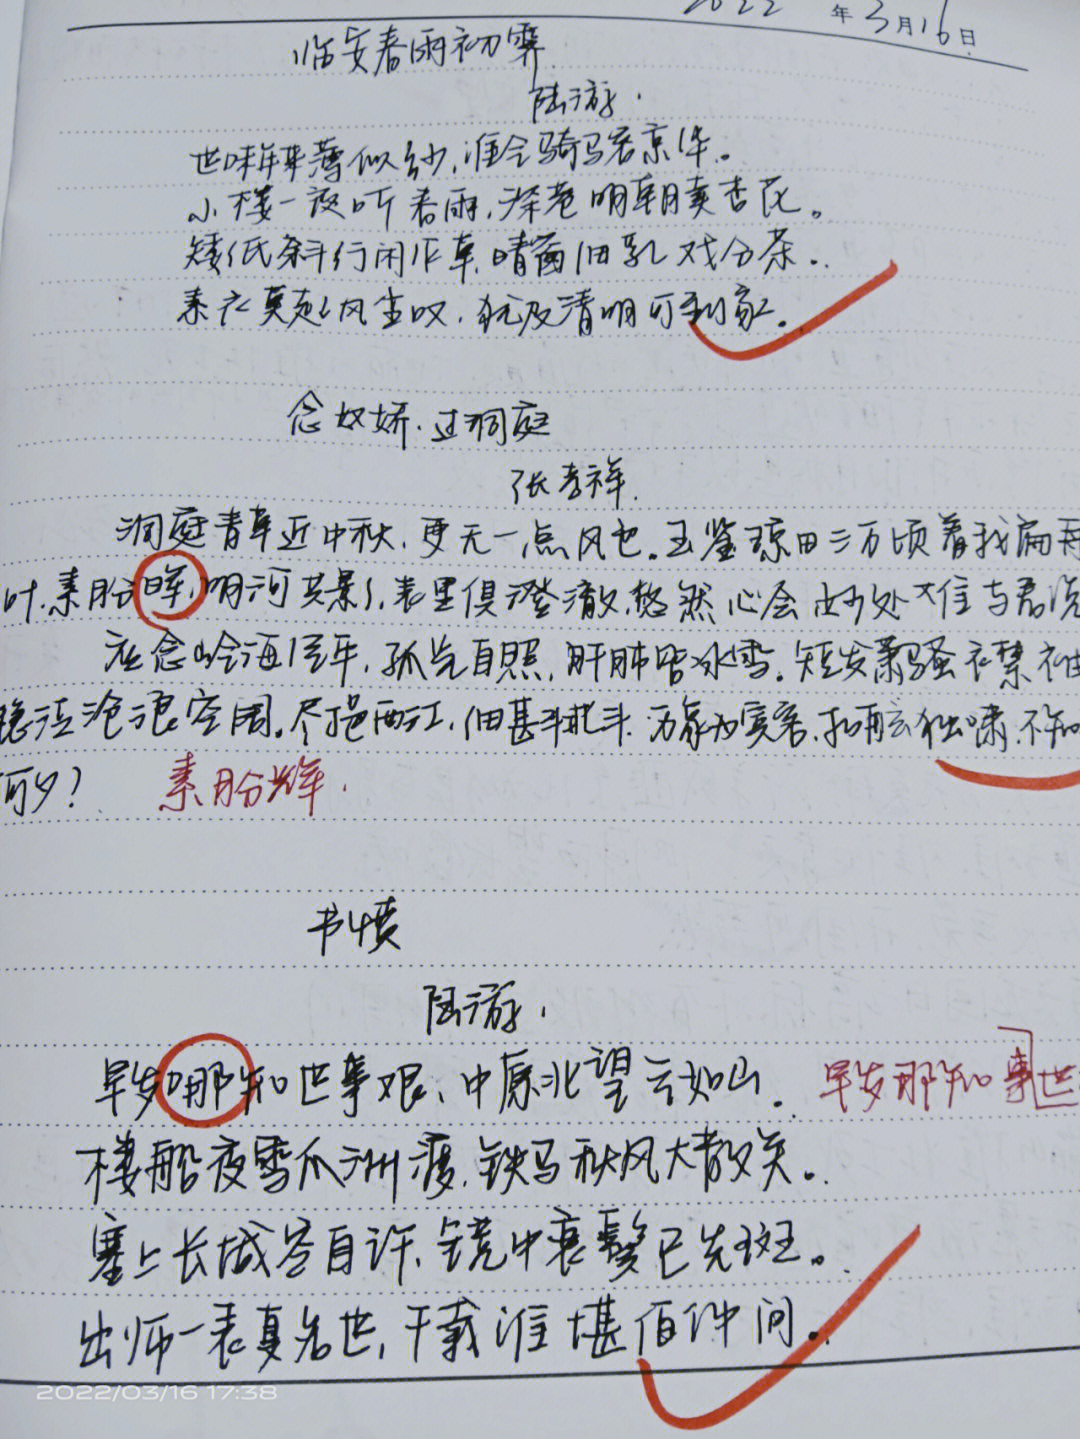 2022年3月16日
临安春雨初霁
陆游.
世味年来薄似纱,谁令骑马客京华。
小楼一夜听春雨,深巷明朝卖杏花。
矮纸斜行闲作草,晴窗细乳戏分茶。
素衣莫起风尘叹,犹及清明可到家。
念奴娇.过洞庭
张孝祥.
洞庭青草近中秋,更无一点风色。玉鉴琼田三万顷着我扁舟
叶.素月分晖,明河共影,表里俱澄澈,悠然心会妙处难与君说
应念岭海经年,孤光自照,肝肺皆冰雪.短发萧骚衣襟袖
稳泛沧浪空阔.尽挹西江,细斟北斗.万象为宾客.扣舷独啸.不知
何夕?
素月分辉.
书愤
陆游.
早岁哪知世事艰,中原北望气如山.
早岁那知事世
楼船夜雪瓜洲渡,铁马秋风大散关。
塞上长城空自许,镜中衰鬓已先斑。
出师一表真名世,千载谁堪伯仲间。
2022/03/16 17:38